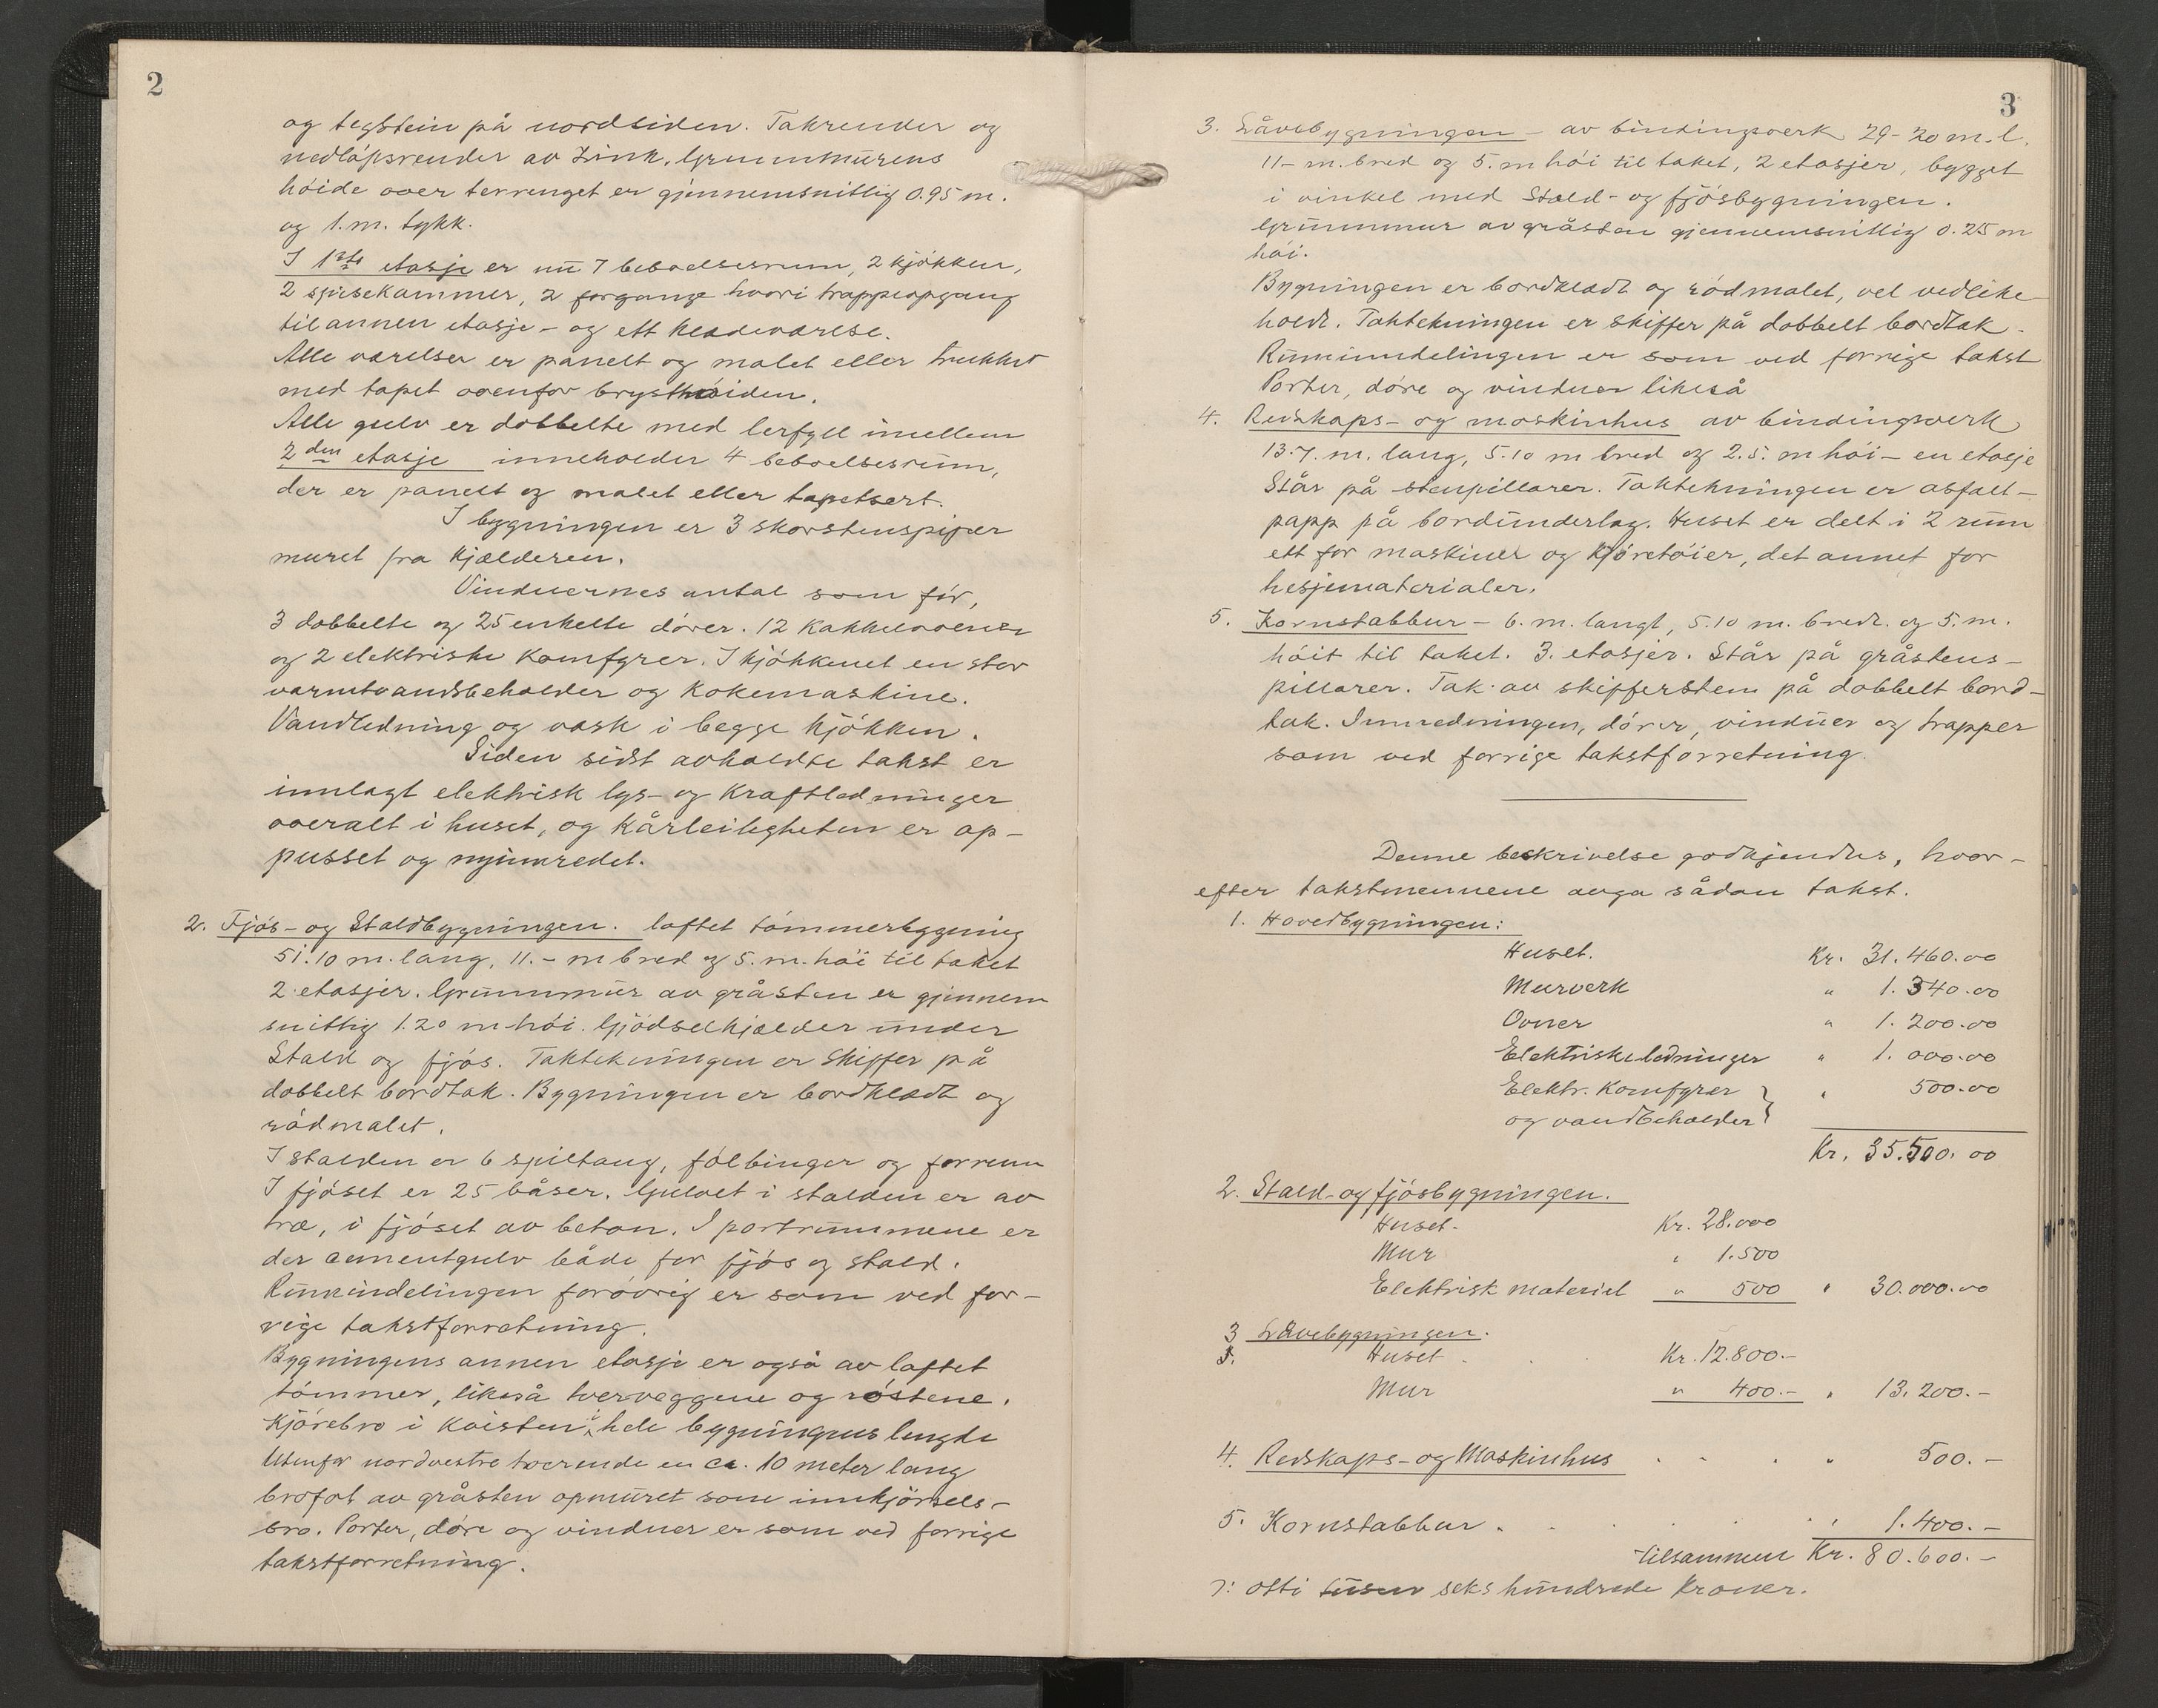 2
og teglstein på nordsiden. Takrender og
nedløpsrender av Zink. Grunnmurens
høide over terrenget er gjennemsnitlig 0.95 m.
og 1. m. tykk.
I 1ste etasje er nu 7 beboelsesrum, 2 kjøkken,
2 spisekammer, 2 forgange hvori trappeopgang
til annen etasje – og ett klædeværelse.
Alle værelser er panelt og malet eller trukket
med tapet ovenfor brysthøiden.
Alle gulv er dobbelte med lerfyll imellem
2den etasje inneholder 4 beboelsesrum,
der er panelt og malet eller tapetsert.
I bygningen er 3 skorstenspiper
muret fra kjælderen.
Vinduernes antal som før,
3 dobbelte og 25 enkelte dører. 12 Kakkelovner
og 2 elektriske Komfyrer. I kjøkkenet en stor
varmtvandsbeholder og Kokemaskine.
Vandledning og vask i begge kjøkken.
Siden sidst avholdte takst er
innlagt elektrisk lys- og Kraftledninger
overalt i huset, og Kårleiligheten er op-
pusset og nyinnredet.
2. Fjøs- og Staldbygningen. laftet tømmerbygning
51.10 m. lang, 11.- m bred og 5. m. høi til taket
2 etasjer. Grunnmur av gråsten er gjennem
snittlig 1.20 m høi. Gjødselkjelder under
Stald og fjøs. Taktekningen er Skiffer på
dobbelt bordtak. Bygningen er bordklædt og
rødmalet.
I stalden er 6 spiltaug, følbinger og forrum
I fjøset er 25 båser. Gulvet i stalden er av
træ, i fjøset av beton. I portrummene er
der cementgulv både for fjøs og stald.
Ruminndelingen forøvrig er som ved for-
rige takstforretning.
Bygningens annen etasje er også av laftet
tømmer, likeså tverveggene og røstene.
Kjørebro i Kvisten i hele bygningens lengde
Utenfor nordvestre tverende en ca. 10 meter lang
brofot av gråsten opmuret som innkjørsels-
bro. Porter, døre og vinduer er som ved forrige
takstforretning.
3
3. Låvebygningen – av bindingsverk 29-20 m. l.
11- m. bred og 5. m høi til taket, 2 etasjer, bygget
i vinkel med Stald- og fjøsbygningen.
Grunnmur av gråsten gjennemsnittlig 0.25 m
høi.
Bygningen er bordklædt og rødmalet, vel vedlike
holdt. Taktekningen er skiffer på dobbelt bordtak.
Ruminndelingen er som ved forrige takst
Porter, døre og vinduer likeså
4. Redskaps- og maskinhus av bindingsverk
13.7. m. lang, 5.10 m bred og 2.5. m høi – en etasje
Står på stenpillarer. Taktekningen er asfalt-
papp på bordunderlag. Huset er delt i 2 rum
ett for maskiner og Kjøretøier, det annet for
hesjematerialer.
5. Kornstabbur – 6. m. langt, 5.10 m. bredt. og 5. m.
høit til taket. 3. etasjer. Står på gråstens-
pillarer. Tak av skifferstein på dobbelt bord-
tak. Innredningen, dører, vinduer og trapper
som ved forrige takstforretning.
Denne beskrivelse godkjendes, hvor-
efter takstmennene avga sådan takst.
1. Hovedbygningen:
Huset. Kr. 31.460.00
Murverk " 1.340.00
Ovner " 1.200.00
Elektriske ledninger " 1.000.00
Elektr. Komfyrer } " 500.00
og vandbeholder
Kr. 35.500.00
2. Stald- og fjøsbygningen.
Huset. Kr. 28.000
Mur " 1.500
Elektrisk materiel " 500 " 30.000.00
3 Låvebygningen.
Huset Kr. 12.800.-
Mur " 400.- " 13.200.-
4. Redskaps- og Maskinhus " 500.-
5. Kornstabbur " 1.400.-
tilsammen Kr. 80.600.-
ɔ: otti tusen seks hundrede Kroner.